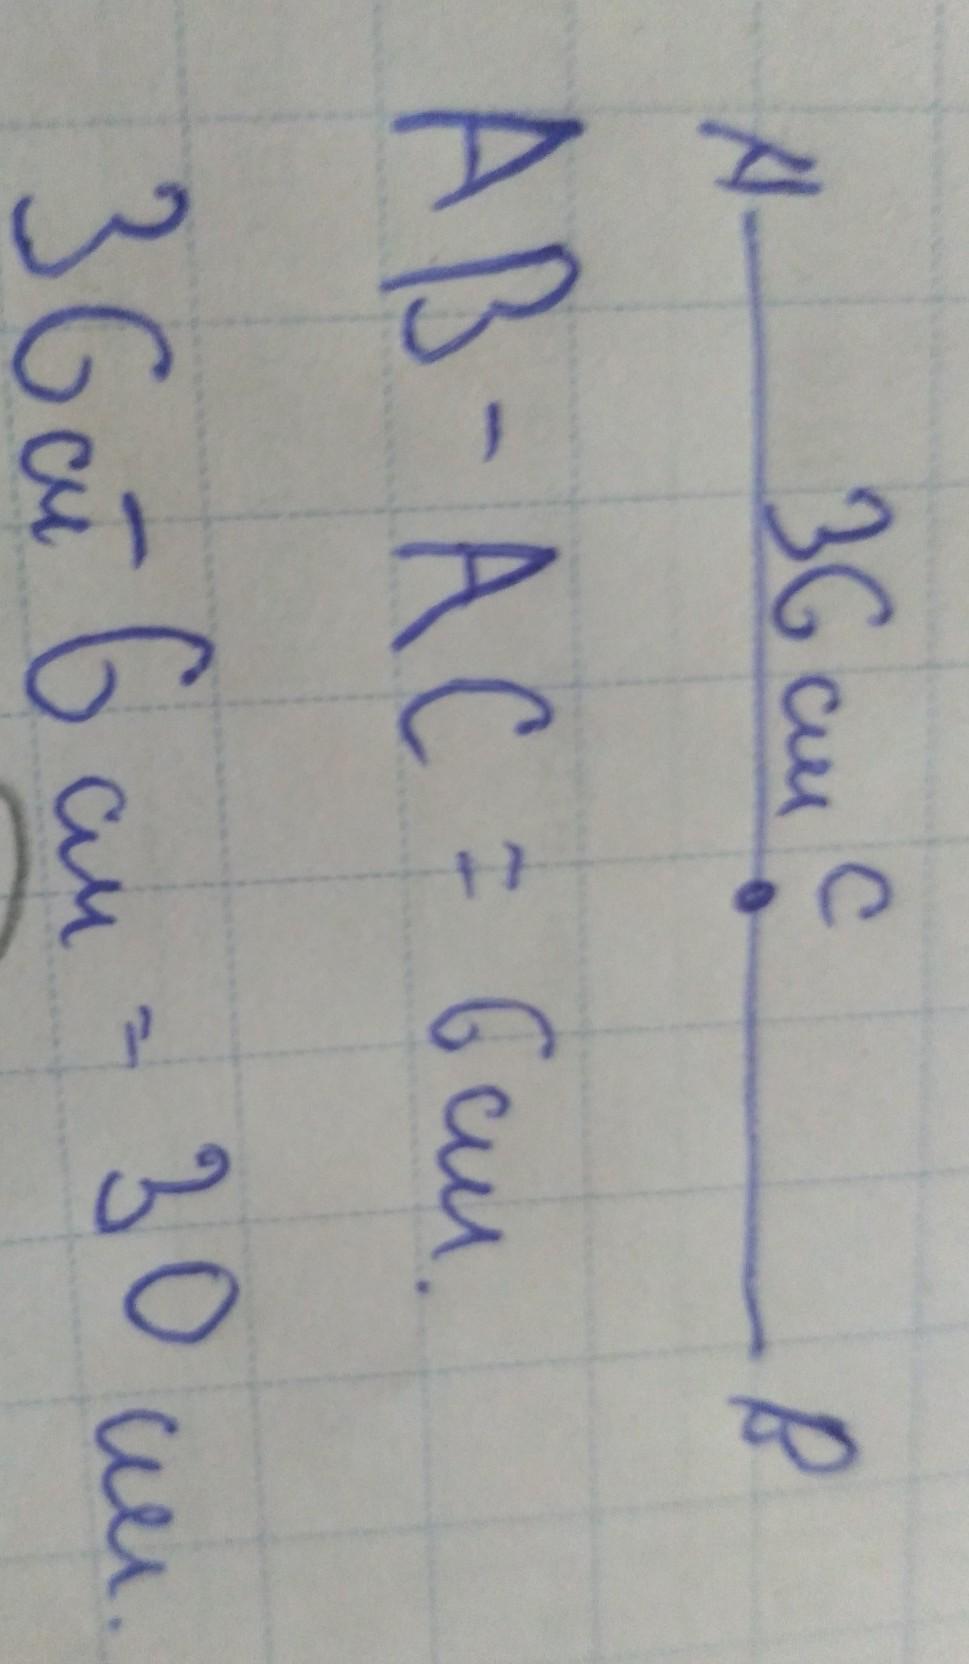 36 см C
A B
AB - AC = 6 см.
36 см - 6 см = 30 см.